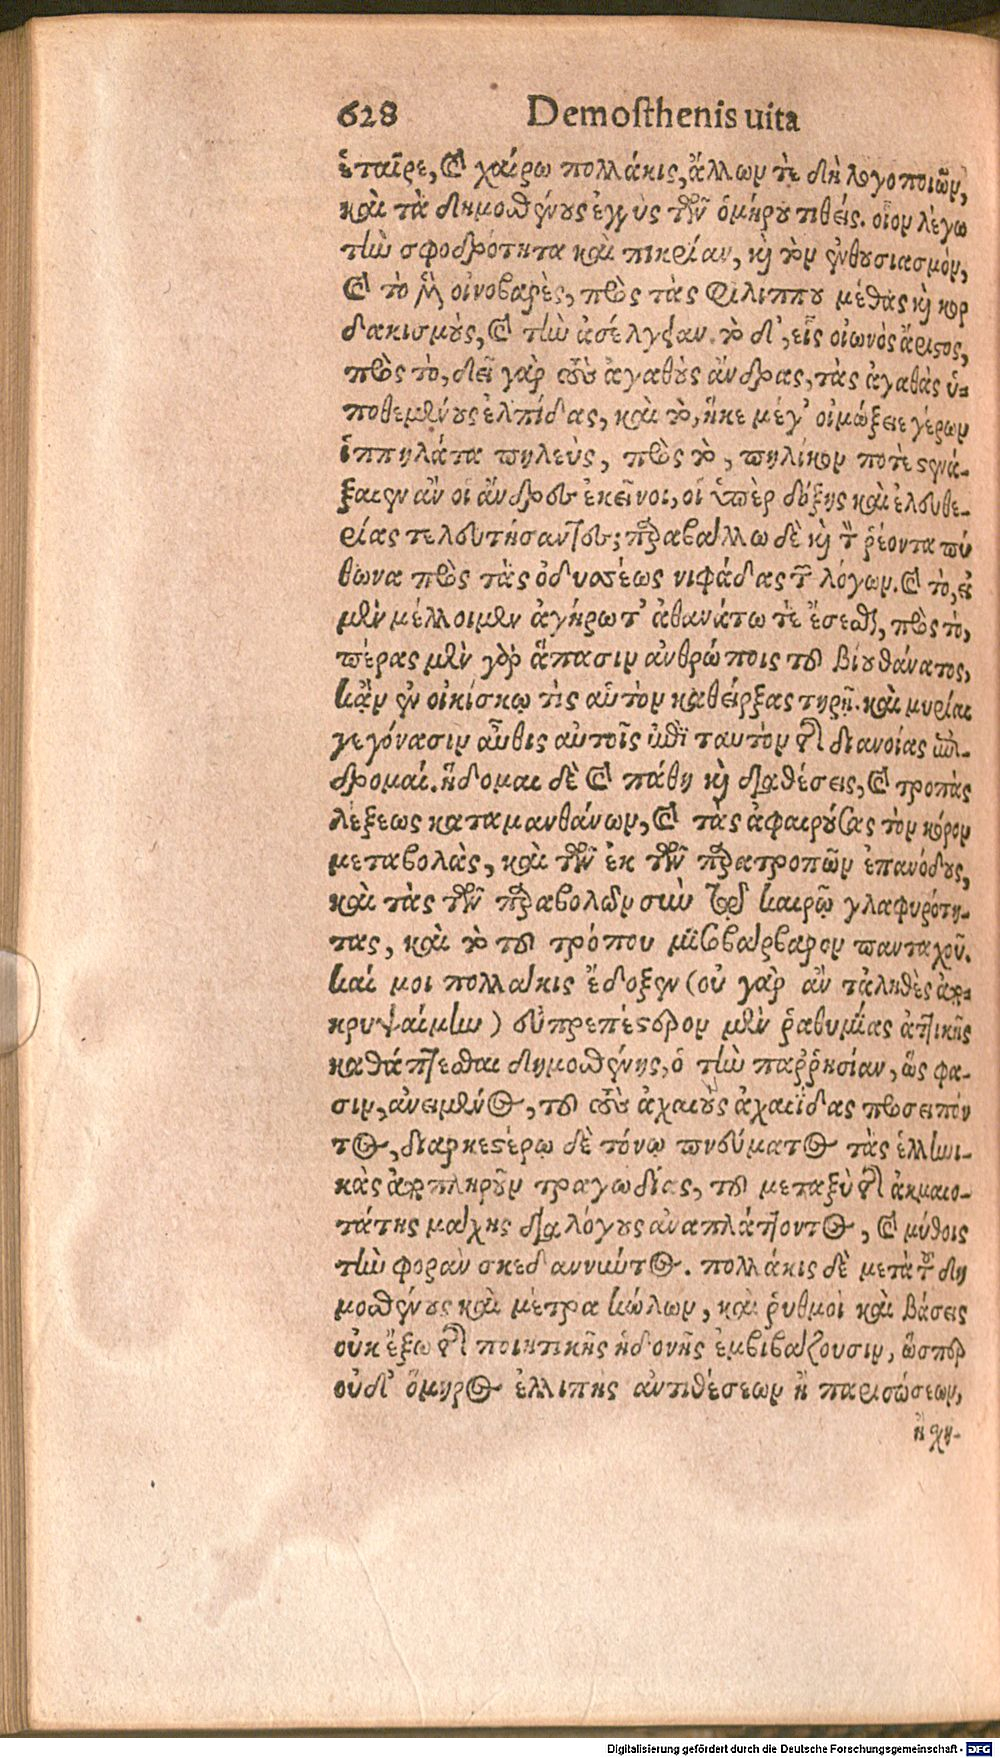 628 Demosthenis uita
ἑταῖρε, καὶ χαίρω πολλάκις, ἄλλων τὲ δὴ λογοποιῶν,
καὶ τὰ δημοσθένους ἐγγὺς τῶν ὁμήρου τιθείς. οἷον λέγω
τὴν σφοδρότητα καὶ πικρίαν, καὶ τὸν ἐνθουσιασμὸν,
καὶ τὸ μὲν οἰνοβαρὲς, πρὸς τὰς Φιλίππου μέθας καὶ κορ
δακισμοὺς, καὶ τὴν ἀσέλγειαν. τὸ δ', εἷς οἰωνὸς ἄριστος,
πρὸς τὸ, δεῖ γὰρ τοὺς ἀγαθοὺς ἄνδρας, τὰς ἀγαθὰς ὑ-
ποθεμένους ἐλπίδας, καὶ τὸ, ἦ κε μέγ' οἰμώξειε γέρων
ἱππηλάτα πηλεὺς, πρὸς τὸ, πηλίκον ποτὲ στενά-
ξαιεν ἂν οἱ ἄνδρες ἐκεῖνοι, οἱ ὑπὲρ δόξης καὶ ἐλευθε-
ρίας τελευτήσαντες; παραβάλλω δὲ καὶ τὸν ῥέοντα πύ
θωνα πρὸς τὰς ὀδυσσέως νιφάδας τῶν λόγων. καὶ τὸ, εἰ
μὲν μέλλοιμεν ἀγήρω τ' ἀθανάτω τὲ ἔσεσθαι, πρὸς τὸ,
πέρας μὲν γὰρ ἅπασιν ἀνθρώποις τοῦ βίου θάνατος,
κᾂν ἐν οἰκίσκῳ τὶς αὑτὸν καθείρξας τηρῇ. καὶ μυρίαι
γεγόνασιν αὖθις αὐτοῖς ἐπὶ ταυτὸν τῆς διανοίας ἐπι-
δρομαί. ἥδομαι δὲ καὶ πάθη καὶ διαθέσεις, καὶ τροπὰς
λέξεως καταμανθάνων, καὶ τὰς ἀφαιρούσας τὸν κόρον
μεταβολὰς, καὶ τῶν ἐκ τῶν παρατροπῶν ἐπανόδους,
καὶ τὰς τῶν παραβολῶν σὺν τῷ καιρῷ γλαφυρότη-
τας, καὶ τὸ τοῦ τρόπου μισοβάρβαρον πανταχοῦ.
καί μοι πολλάκις ἔδοξεν (οὐ γὰρ ἂν τἀληθὲς ἀπο-
κρυψαίμην) εὐπρεπέστερον μὲν ῥαθυμίας ἀττικῆς
καθάπτεσθαι δημοσθένης, ὁ τὴν παῤῥησίαν, ὥς φα-
σιν, ἀνειμένος, τοῦ τοὺς ἀχαιοὺς ἀχαιΐδας προσειπόν
τος, διαρκεστέρῳ δὲ τόνῳ πνεύματος τὰς ἑλληνι-
κὰς ἀποπληροῦν τραγωδίας, τοῦ μεταξὺ τῆς ἀκμαιο-
τάτης μάχης διαλόγους ἀναπλάττοντος, καὶ μύθοις
τὴν φορὰν σκεδαννύντος. πολλάκις δὲ μετὰ τῶν δη
μοσθένους καὶ μέτρα κώλων, καὶ ῥυθμοὶ καὶ βάσεις
οὐκ ἔξω τῆς ποιητικῆς ἡδονῆς ἐμβιβάζουσιν, ὥσπερ
οὐδ' ὅμηρος ἐλλιπὴς ἀντιθέσεων ἢ παρισώσεων,
ἢ χη-
Digitalisierung gefördert durch die Deutsche Forschungsgemeinschaft - DFG